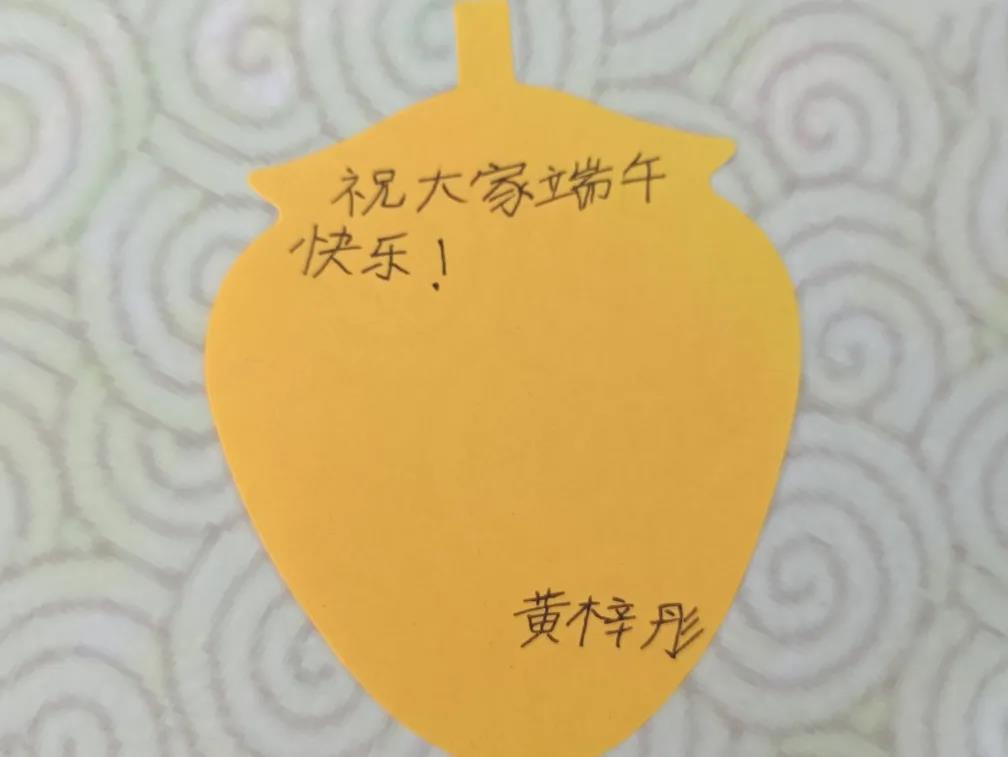 祝大家端午
快乐！
黄梓彤